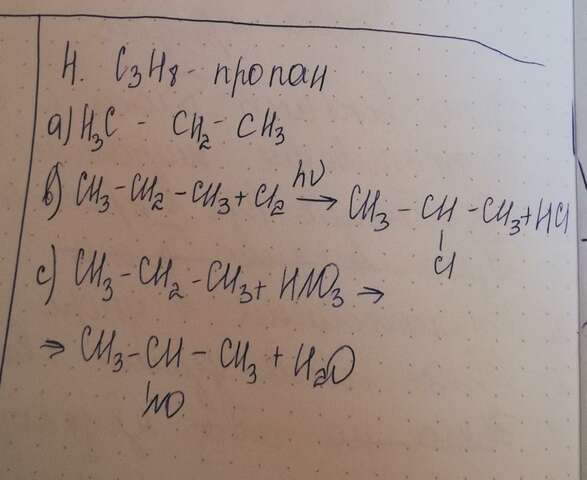 H. C3H8 - пропан
a) H3C - CH2 - CH3
b) CH3-CH2-CH3+Cl2 hν → CH3 - CH - CH3+HCl
Cl
c) CH3-CH2-CH3+ HNO3 →
⇒ CH3-CH-CH3 + H2O
NO